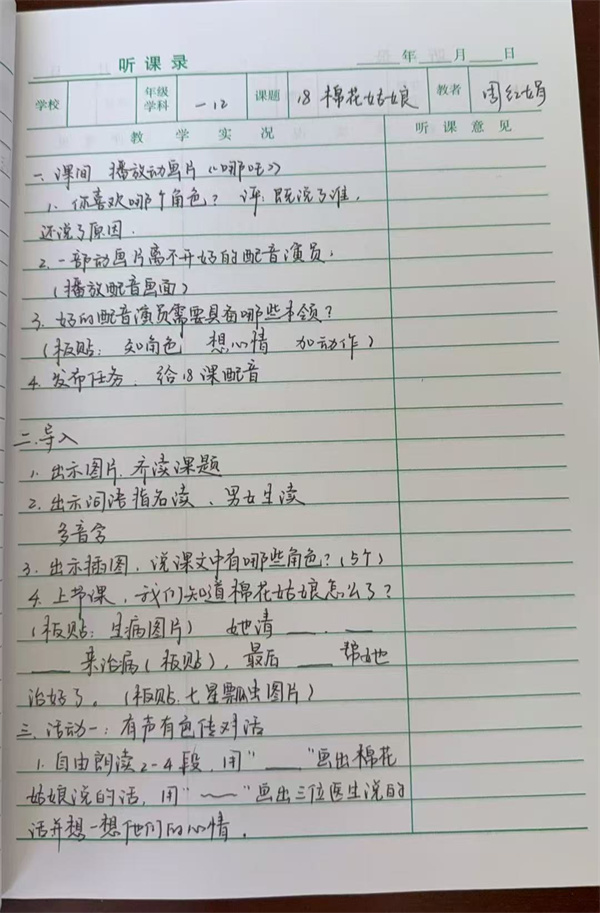 听课录 年 月 日
学校 年级学科 一12 课题 18 棉花姑娘 教者 周红娟
教学实况 听课意见
一、课间 播放动画片《哪吒》
1. 你喜欢哪个角色？评：既说了谁，
还说了原因.
2. 一部动画片离不开好的配音演员.
（播放配音画面）
3. 好的配音演员需要具有哪些本领？
（板贴：知角色 想心情 加动作）
4. 发布任务. 给18课配音
二.导入
1. 出示图片. 齐读课题
2. 出示词语指名读、男女生读
多音字
3. 出示插图，说课文中有哪些角色？（5个）
4. 上节课，我们知道棉花姑娘怎么了？
（板贴：生病图片） 她请 ___、___
___ 来治病（板贴），最后 ___ 帮她
治好了。（板贴.七星瓢虫图片）
三.活动一：有声有色传对话
1. 自由朗读2-4段，用“____”画出棉花
姑娘说的话，用“﹏﹏”画出三位医生说的
话并想一想他们的心情。